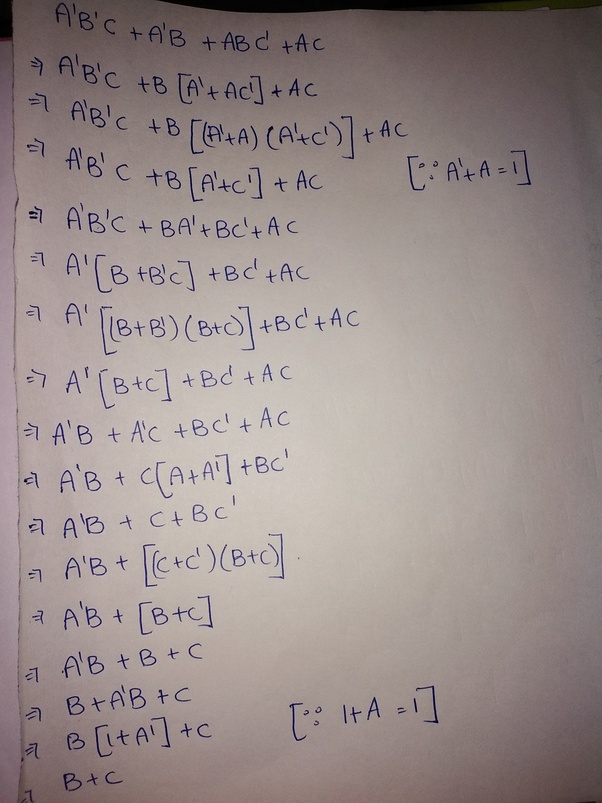 A'B'C + A'B + ABC' + AC
⇒ A'B'C + B [A' + AC'] + AC
⇒ A'B'C + B [(A'+A) (A'+C')] + AC
⇒ A'B'C + B [A'+C'] + AC [∵ A'+A = 1]
⇒ A'B'C + BA' + BC' + AC
⇒ A' [B + B'C] + BC' + AC
⇒ A' [(B+B') (B+C)] + BC' + AC
⇒ A' [B+C] + BC' + AC
⇒ A'B + A'C + BC' + AC
⇒ A'B + C[A+A'] + BC'
⇒ A'B + C + BC'
⇒ A'B + [(C+C') (B+C)].
⇒ A'B + [B+C]
⇒ A'B + B + C
⇒ B + A'B + C
⇒ B [1+A'] + C [∵ 1+A = 1]
⇒ B+C